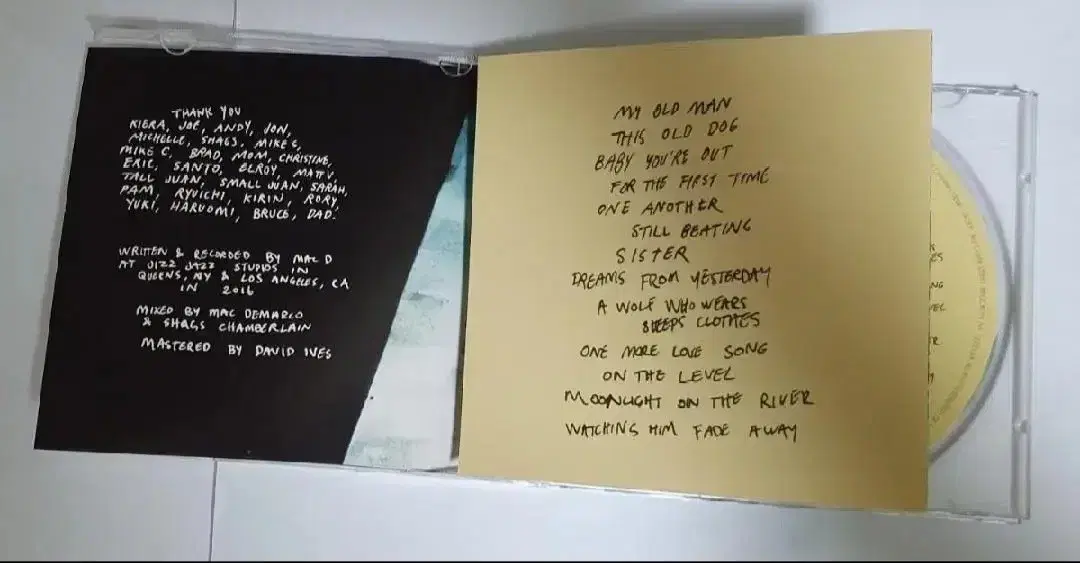 THANK YOU
KIERA, JOE, ANDY, JON,
MICHELLE, SHAGS, MIKE C,
MIKE C, BRAD, MOM, CHRISTINE,
ERIC, SANTO, ELROY, MATT V,
TALL JUAN, SMALL JUAN, SARAH,
PAM, RYUICHI, KIRIN, RORY,
YUKI, HARUOMI, BRUCE, DAD.
WRITTEN & RECORDED BY MAC D
AT JIZZ JAZZ STUDIOS IN
QUEENS, NY & LOS ANGELES, CA
IN 2016
MIXED BY MAC DEMARCO
& SHAGS CHAMBERLAIN
MASTERED BY DAVID IVES
MY OLD MAN
THIS OLD DOG
BABY YOU'RE OUT
FOR THE FIRST TIME
ONE ANOTHER
STILL BEATING
SISTER
DREAMS FROM YESTERDAY
A WOLF WHO WEARS
SHEEPS CLOTHES
ONE MORE LOVE SONG
ON THE LEVEL
MOONLIGHT ON THE RIVER
WATCHING HIM FADE AWAY